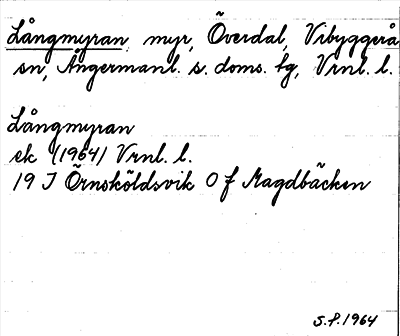 Långmyran, myr, Överdal, Vibyggerå
sn, Ångermanl. s. doms. tg, Vrnl. l.
Långmyran
ek (1964) Vrnl. l.
19 J Örnsköldsvik 0 f Magdbäcken
S.P. 1964